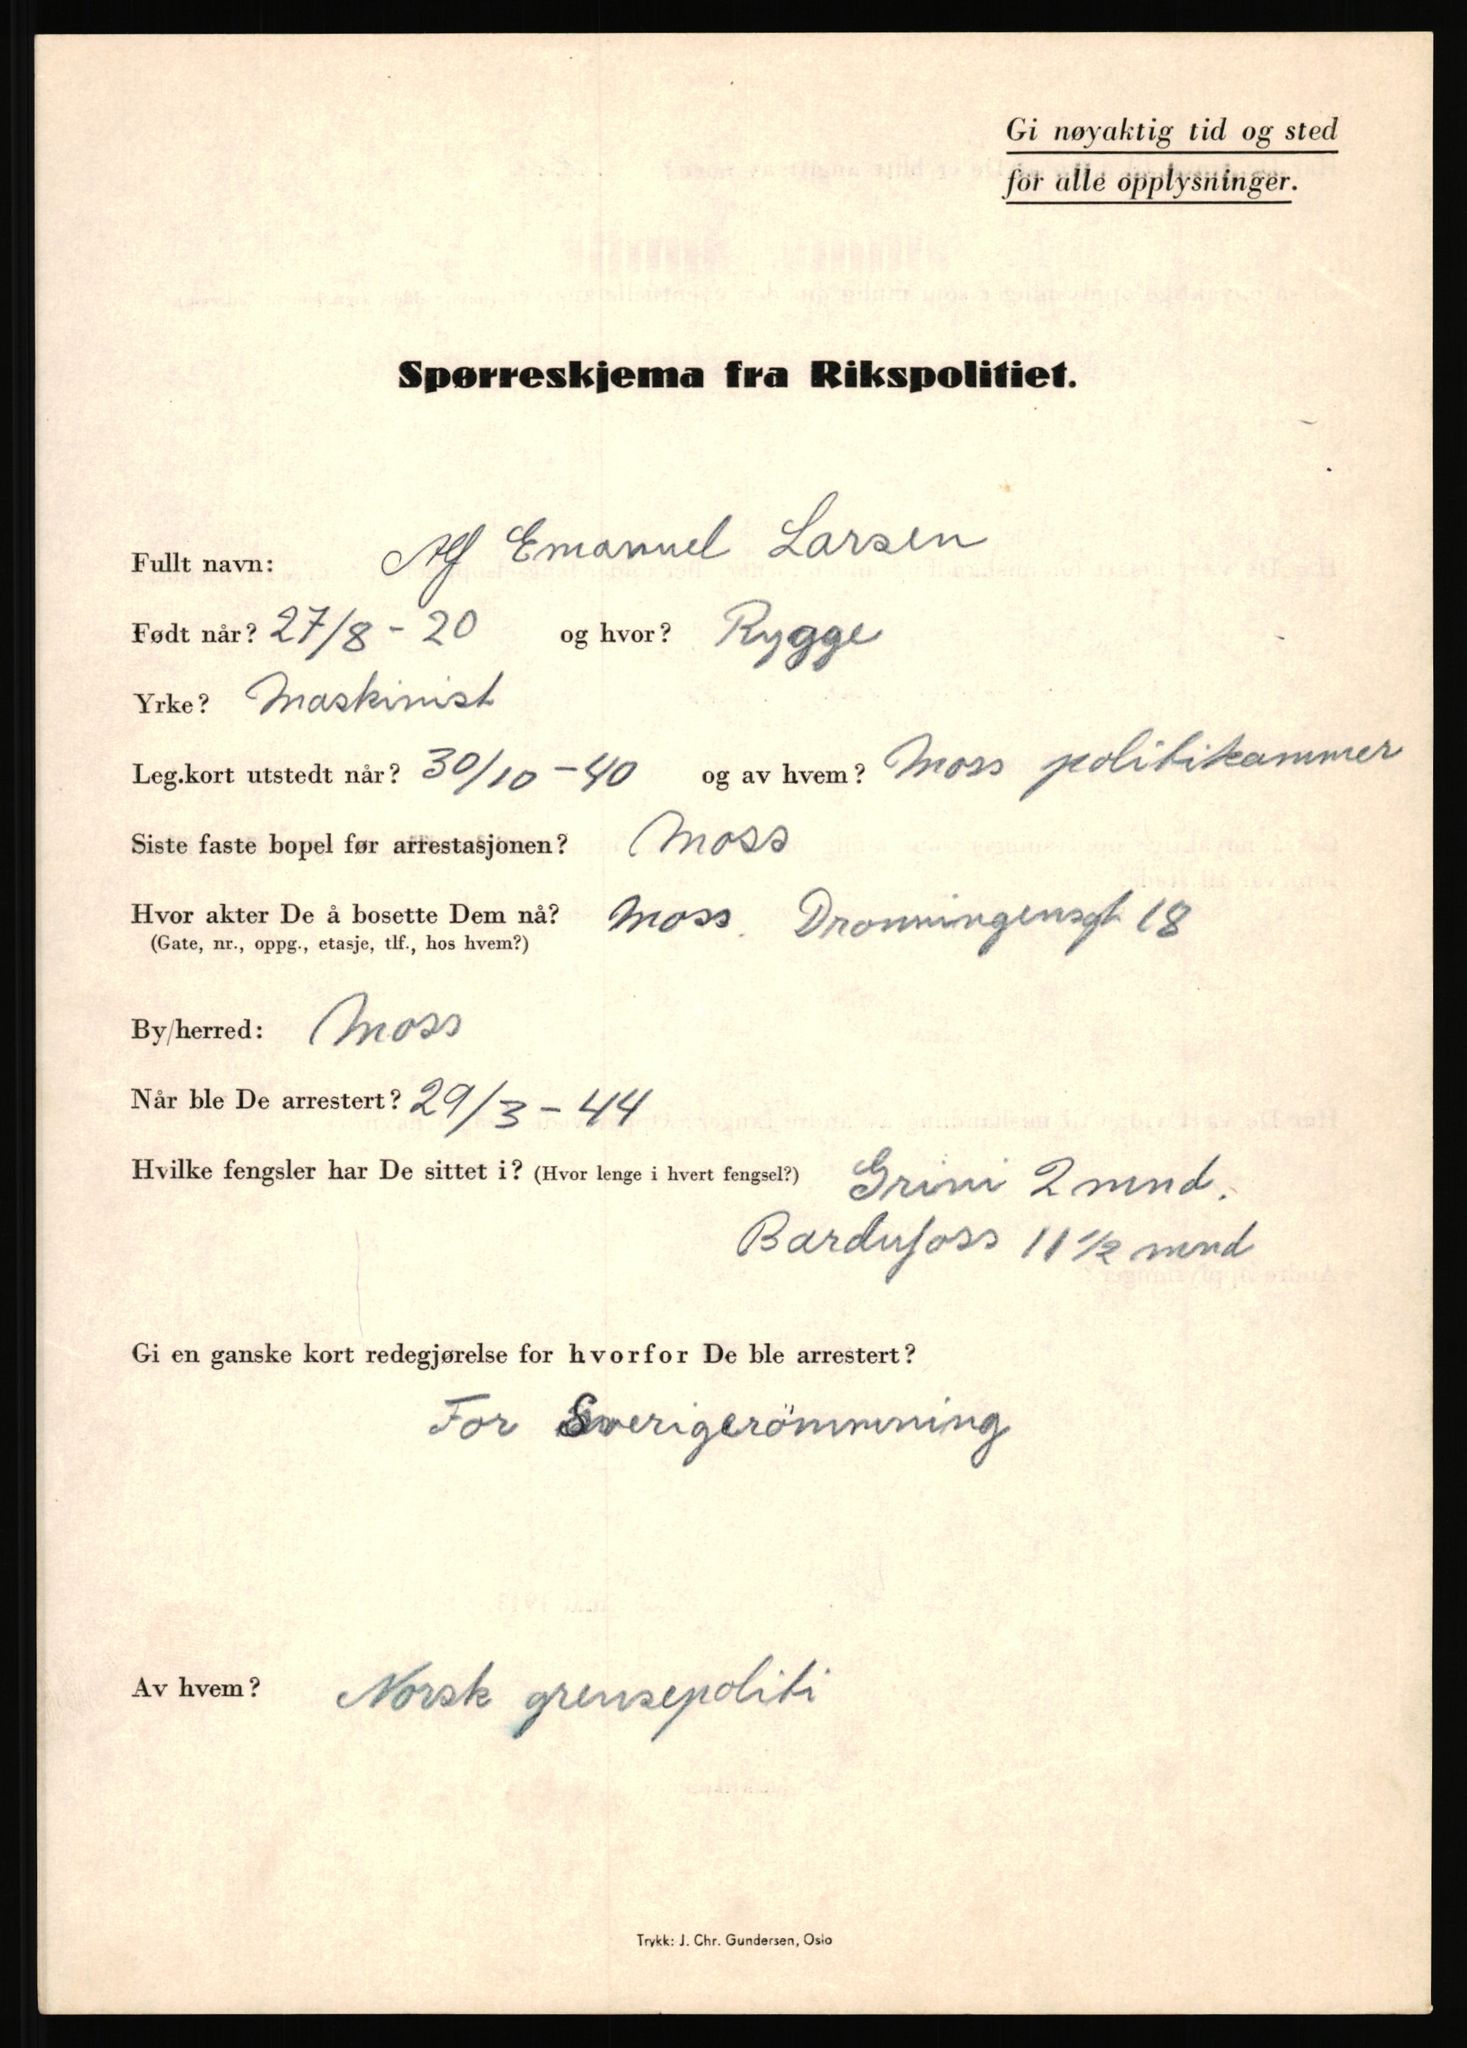 Gi nøyaktig tid og sted
for alle opplysninger.
Spørreskjema fra Rikspolitiet.
Fullt navn: Alf Emanuel Larsen
Født når? 27/8 - 20 og hvor? Rygge
Yrke? Maskinist
Leg.kort utstedt når? 30/10 - 40 og av hvem? Moss politikammer
Siste faste bopel før arrestasjonen? Moss
Hvor akter De å bosette Dem nå? Moss. Dronningensgt 18
(Gate, nr., oppg., etasje, tlf., hos hvem?)
By/herred: Moss
Når ble De arrestert? 29/3 - 44
Hvilke fengsler har De sittet i? (Hvor lenge i hvert fengsel?) Grini 2 mnd.
Bardufoss 11 1/2 mnd
Gi en ganske kort redegjørelse for hvorfor De ble arrestert?
For Sverigerömmning
Av hvem? Norsk grensepoliti
Trykk: J. Chr. Gundersen, Oslo